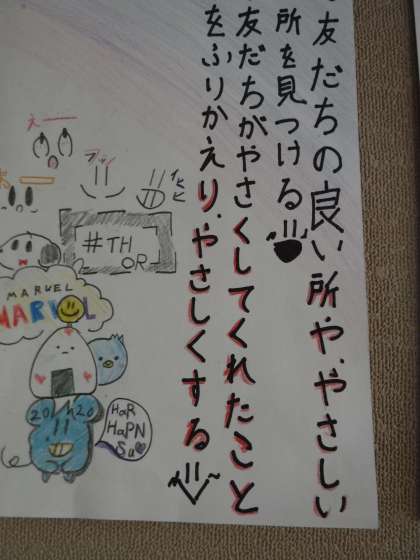 友だちの良い所や、やさしい
所を見つける
友だちがやさしくしてくれたこと
をふりかえり、やさしくする
えー
#TH
OR
MARVEL
MARVEL
2020
HaR
HaPN
Su